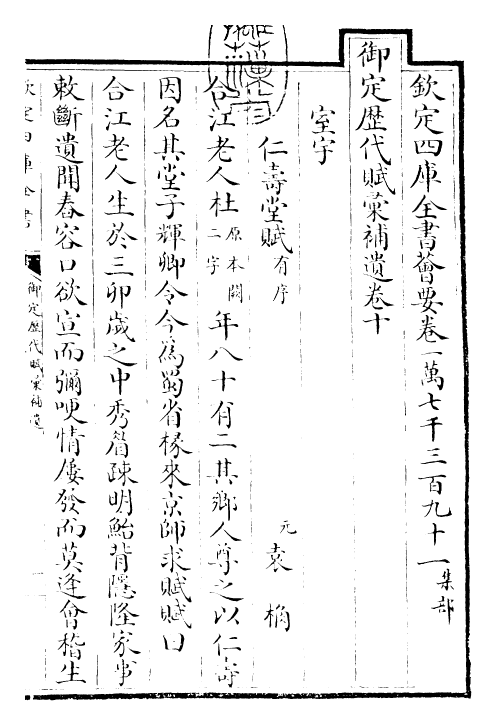 欽定四庫全書薈要卷一萬七千三百九十一集部
御定歷代賦彙補遺卷十
室宇
仁壽堂賦有序 元袁桷
合江老人杜原本闕二字年八十有二其鄉人尊之以仁壽
因名其堂子輝卿令今為蜀省椽來京師求賦賦曰
合江老人生於三卯歲之中秀眉疎明鮐背隱隆家事
敕斷遺閒舂容口欲宣而彌哽情屢發而莫逢會稽生
欽定四庫全書
御定歷代賦彙補遺
一